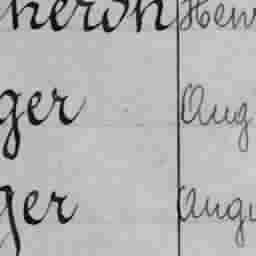 heron Hen
ger Aug
ger Augu